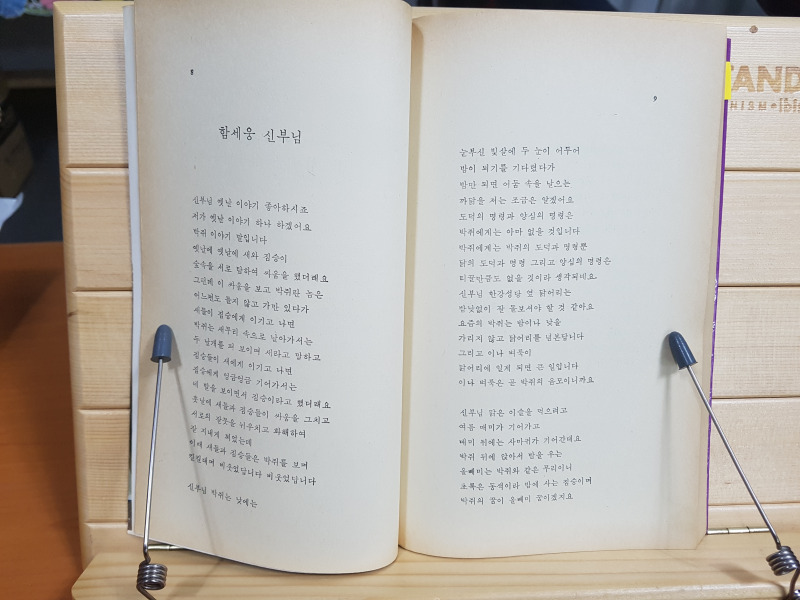 8
함세웅 신부님
신부님 옛날 이야기 좋아하시죠
저가 옛날 이야기 하나 하겠어요
박쥐 이야기 말입니다
옛날에 옛날에 새와 짐승이
숲속을 서로 탐하여 싸움을 했더래요
그런데 이 싸움을 보고 박쥐란 놈은
어느편도 들지 않고 가만 있다가
새들이 짐승에게 이기고 나면
박쥐는 새무리 속으로 날아가서는
두 날개를 펴 보이며 새라고 말하고
짐승들이 새에게 이기고 나면
짐승에게 엉금엉금 기어가서는
네 발을 보이면서 짐승이라고 했더래요
훗날에 새들과 짐승들이 싸움을 그치고
서로의 잘못을 뉘우치고 화해하여
잘 지내게 되었는데
이때 새들과 짐승들은 박쥐를 보며
낄낄대며 비웃었답니다 비웃었답니다
신부님 박쥐는 낮에는
9
눈부신 빛살에 두 눈이 어두어
밤이 되기를 기다렸다가
밤만 되면 어둠 속을 날으는
까닭을 저는 조금은 알겠어요
도덕의 명령과 양심의 명령은
박쥐에게는 아마 없을 것입니다
박쥐에게는 박쥐의 도덕과 명령뿐
닭의 도덕과 명령 그리고 양심의 명령은
티끌만큼도 없을 것이라 생각되네요.
신부님 한강성당 옆 닭어리는
밤낮없이 잘 돌보셔야 할 것 같아요
요즘의 박쥐는 밤이나 낮을
가리지 않고 닭어리를 넘본답니다
그리고 이나 벼룩이
닭어리에 일게 되면 큰 일입니다
이나 벼룩은 곧 박쥐의 음모이니까요
신부님 맑은 이슬을 먹으려고
여름 매미가 기어가고
매미 뒤에는 사마귀가 기어간데요
박쥐 뒤에 앉아서 밤을 우는
올빼미는 박쥐와 같은 무리이니
초록은 동색이라 밤에 사는 짐승이며
박쥐의 꿈이 올빼미 꿈이겠지요